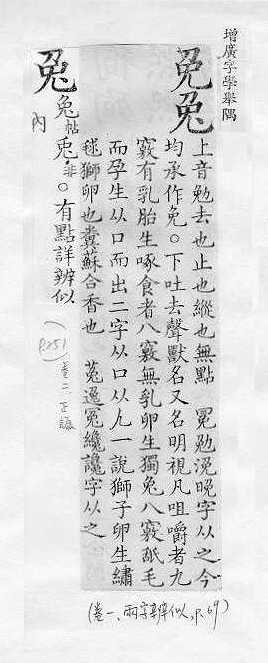 增廣字學舉隅
免兔
上音勉去也止也縱也無點 冕勉浼晚字从之今
均承作免。下吐去聲獸名又名明視凡咀嚼者九
竅有乳胎生啄食者八竅無乳卵生獨兔八竅舐毛
而孕生从口而出二字从口从儿一說獅子卵生繡
毬獅卵也糞蘇合香也 菟逸冤纔讒字从之
兔
兔帖
兎非。有點詳辨似
內
(P.251) 卷二 正譌
(卷一、兩字辨似, P.69)